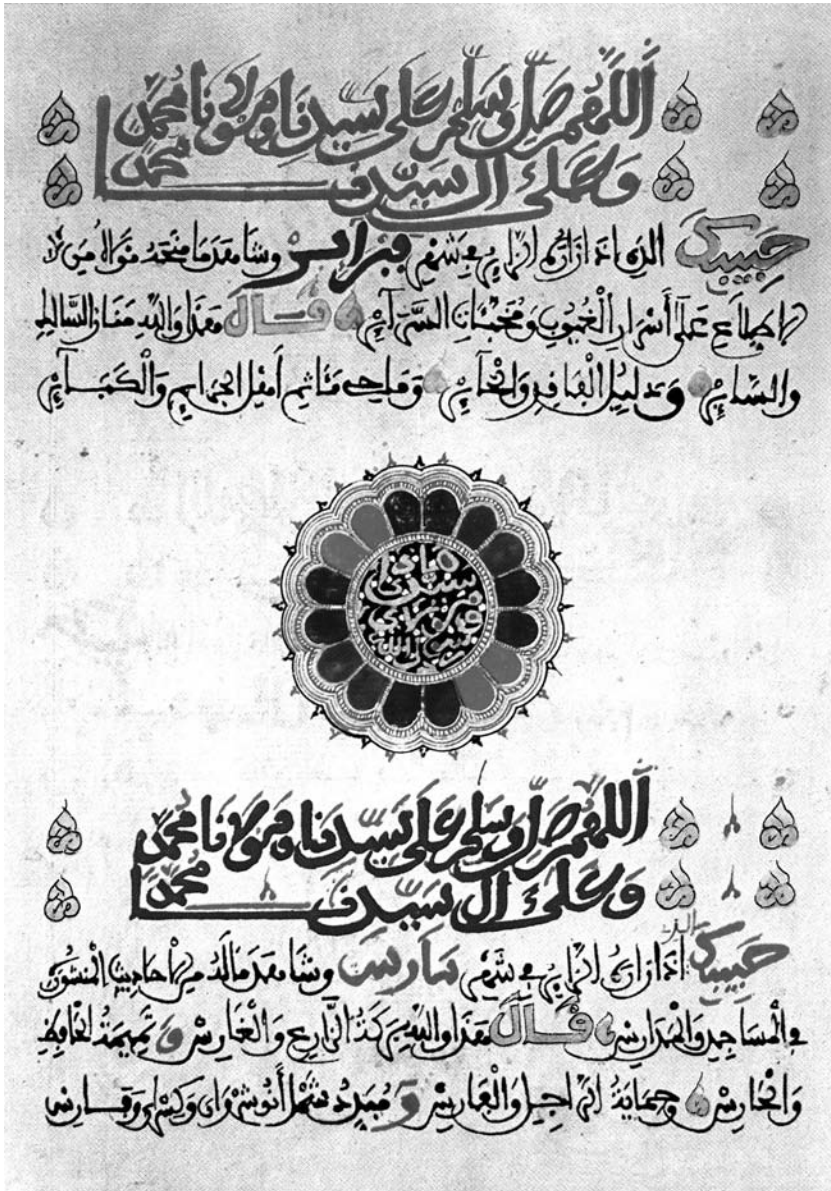 اللهم صل وسلم على سيدنا ومولانا محمد
وعلى آل سيدنا محمد
حبيبك الذي إذا زاره الزاير في شهر فبراير وشاهد ما منحه مولاه من
الاطلاع على أسرار الغيوب ومخبئات السراير قال هذا والله منار السالك
والساير ودليل والحاير وماحي مئاثم أهل الجرايم والكباير
سيدنا
اللهم صل وسلم على سيدنا ومولانا محمد
وعلى آل سيدنا محمد
حبيبك الذي إذا زاره الزاير في شهر مارس وشاهد ماله من الأحاديث المنشورة
في المساجد والمدارس قال هذا والله بركة الزارع والغارس وتميمة الحافظ
والحارس وحماية الراجل والفارس ومبدد شمل أنوشروان وكسرى وفارس